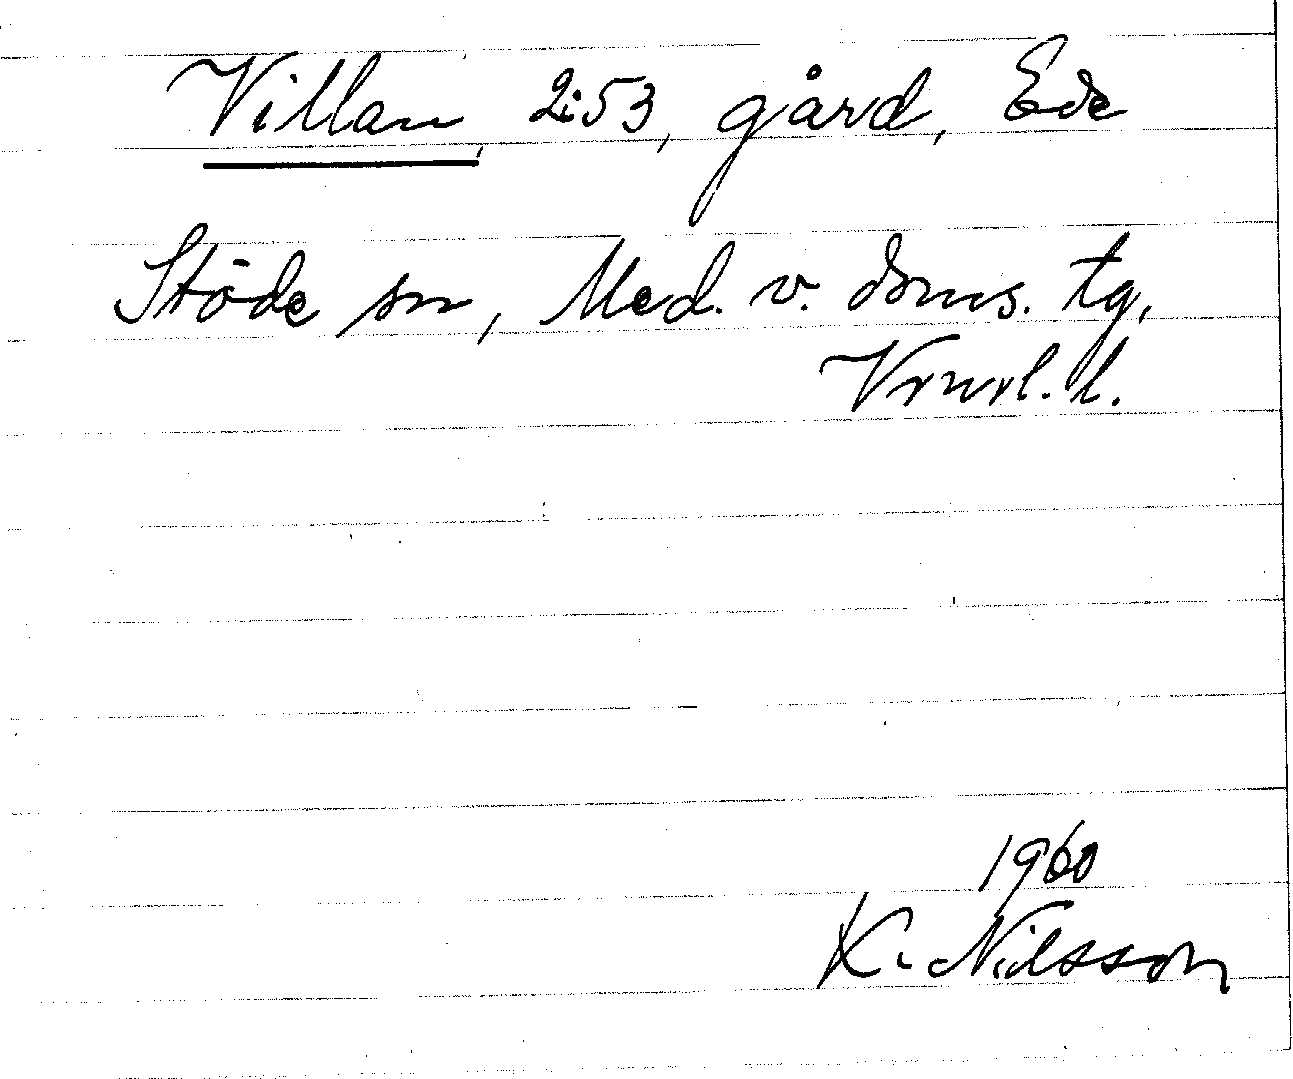 Villan, 2:53, gård, Ede
Stöde sn, Med. v. doms. tg,
Vrnrl. l.
1960
K. Nilsson